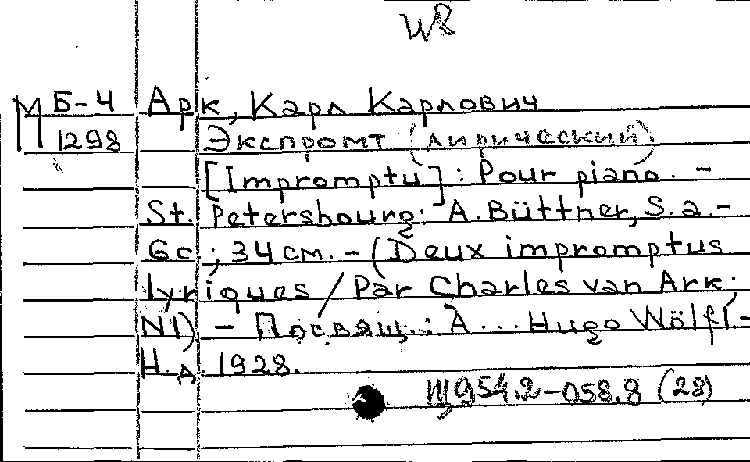 М Б-4 Арк, Карл Карлович
1298 Экспромт (лирический)
[Impromptu]: Pour piano. –
St. Petersbourg: A. Büttner, S. a. –
6с.; 34 см. – (Deux impromptus
lyriques / Par Charles van Ark;
N1) – Посвящ.: A... Hugo Wölfl –
Н. д. 1928.
Щ954.2-058.8 (28)